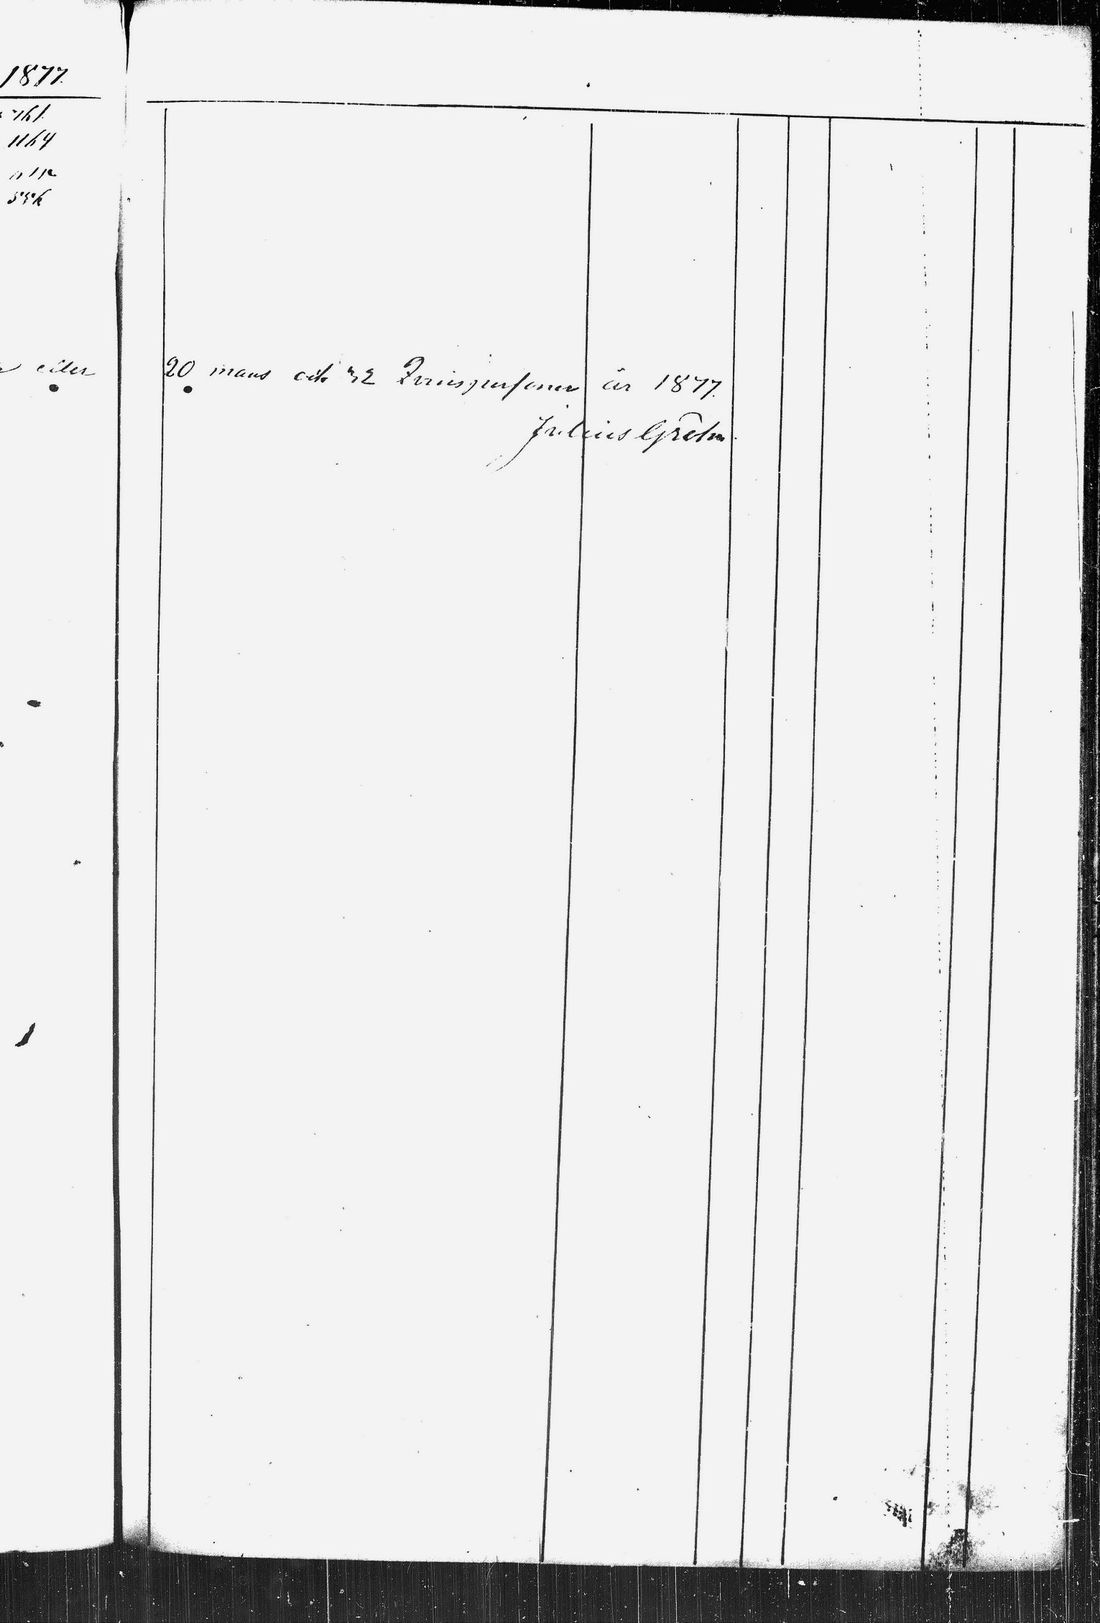 1877.
761
1164
1112
556
eller 20 mans och 32 Qvinspersoner år 1877.
Julius Grohn.